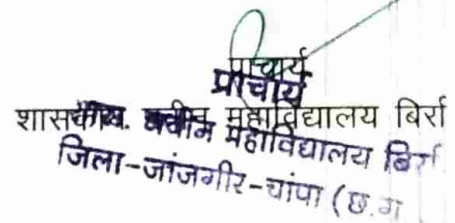 प्राचार्य
प्राचार्य
शासकीय नवीन महाविद्यालय बिर्रा
शासकीय. नवीन महाविद्यालय बिर्रा
जिला-जांजगीर-चांपा (छ.ग